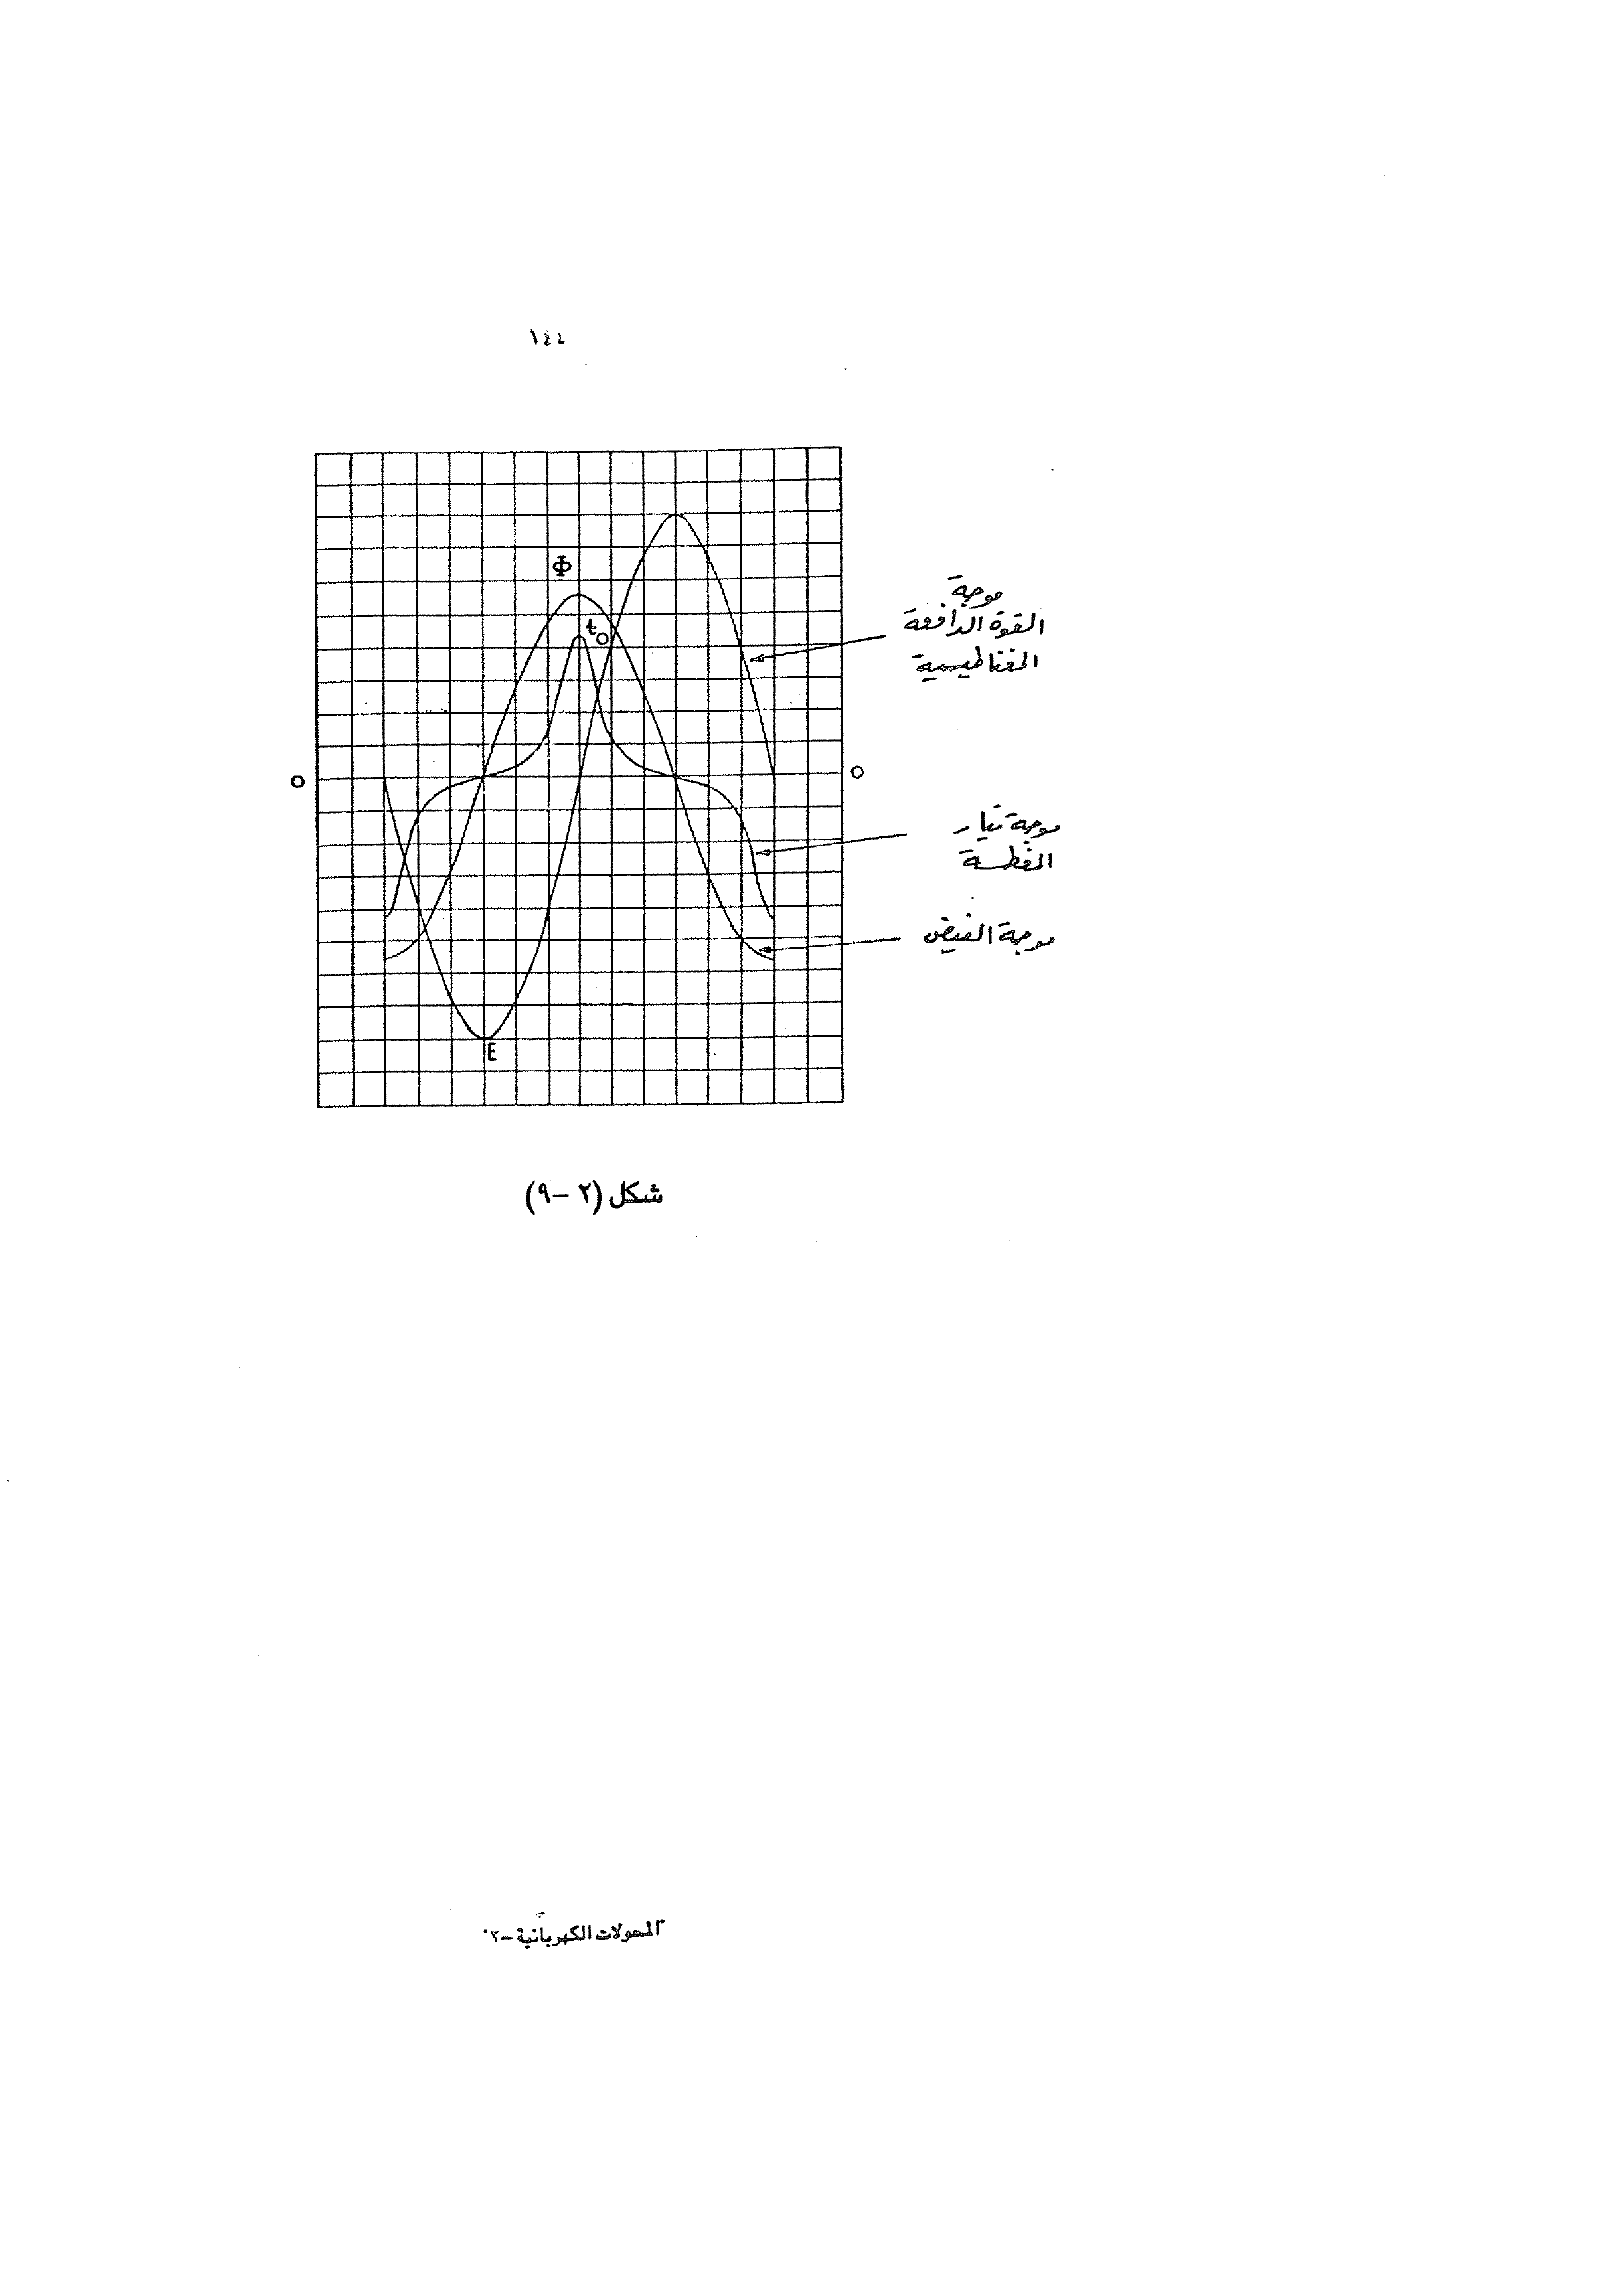 ١٤٤
Φ
t₀
موجة
القوة الدافعة
المغناطيسية
O
O
موجة تيار
المغطسة
موجة الفيض
E
شكل (٢ – ٩)
المحولات الكهربائية –٢